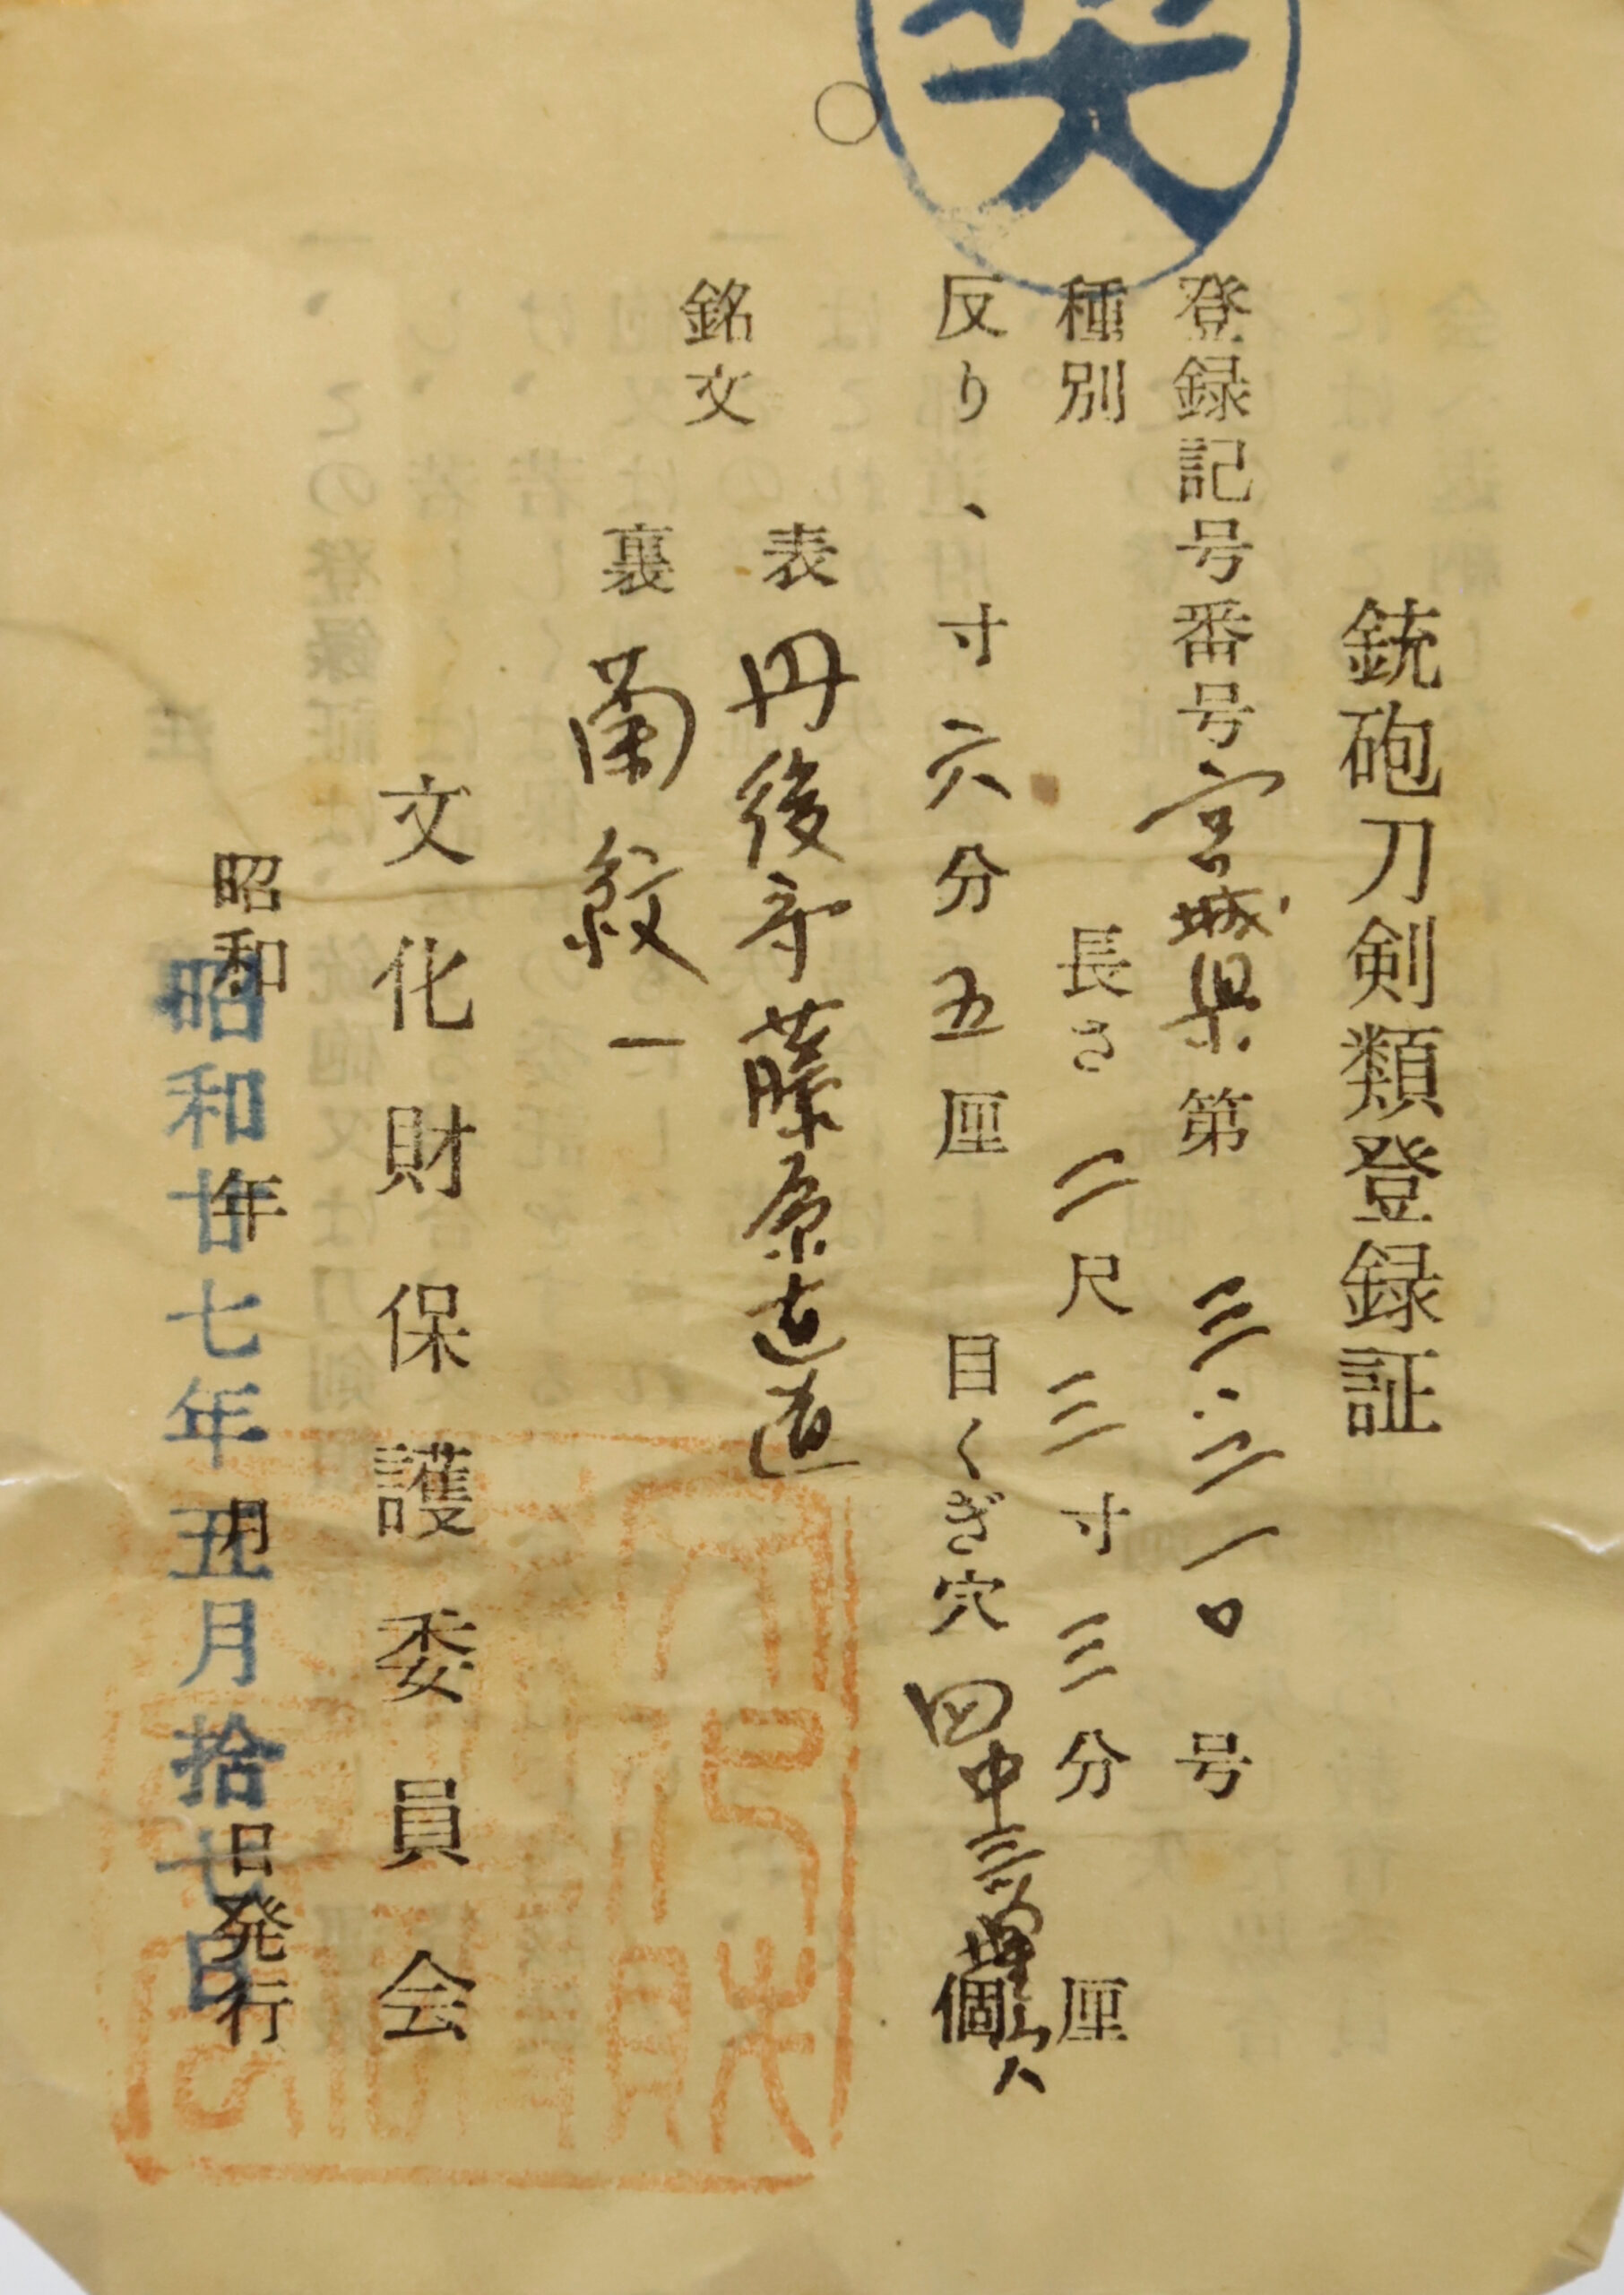 銃砲刀剣類登録証
登録記号番号 宮城県 第 三、二一〇 号
種別 長さ 二尺三寸三分 厘
反り、寸六分五厘 目くぎ穴 四中三 個
銘文
表 丹後守藤原直道
裏 菊紋一
文化財保護委員会
昭和 年 月 日発行
昭和廿七年五月拾七日